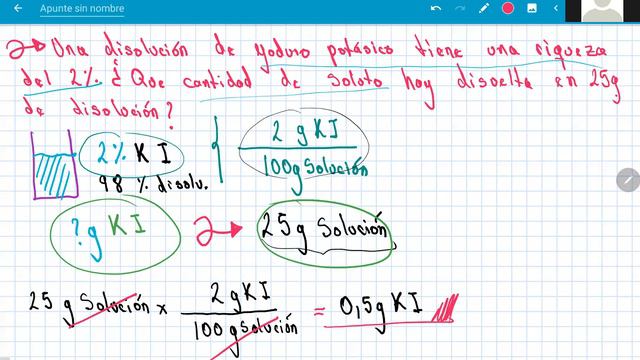 Apunte sin nombre
2→ Una disolución de yoduro potásico tiene una riqueza
del 2%. ¿ Que cantidad de soloto hay disuelta en 25g
de disolución?
2% K I
98 % disolv.
2 g KI
100g Solución
? g KI
2→ 25 g Solución
25 g Solución x 2 g KI / 100 g Solución = 0,5 g KI